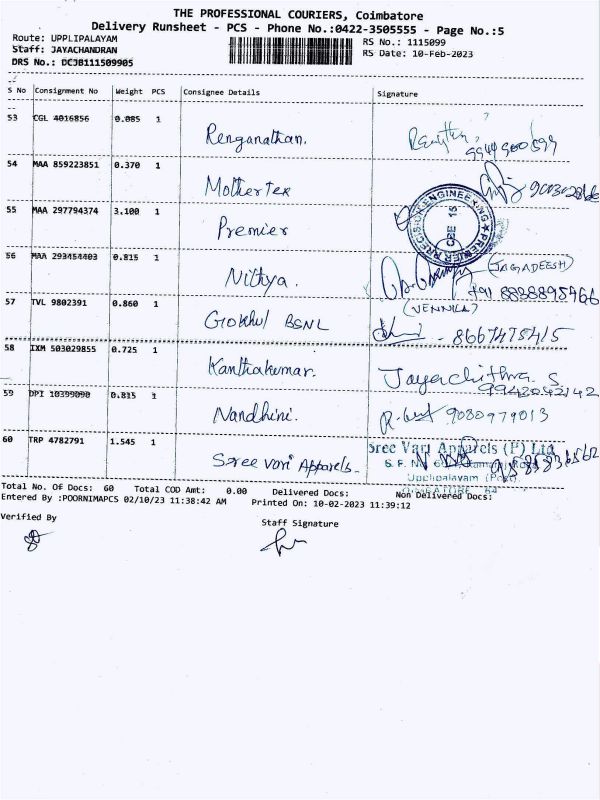 THE PROFESSIONAL COURIERS, Coimbatore
Delivery Runsheet - PCS - Phone No.:0422-3505555 - Page No.:5
Route: UPPLIPALAYAM
Staff: JAYACHANDRAN
DRS No.: DCJB111509905
RS No.: 1115099
RS Date: 10-Feb-2023
S No Consignment No Weight PCS Consignee Details Signature
53 CGL 4016856 0.085 1 Renganathan.
54 MAA 859223851 0.370 1 Mothertex
55 MAA 297794374 3.100 1 Premier
PRECISION ENGINEERING ★ PREMIER
CBE 15
56 MAA 293454403 0.815 1 Nithya. (JAGADEESH)
+91 8838895966
57 TVL 9802391 0.860 1 Gokhul BSNL (VENNILA)
8667475415
58 IXM 503029855 0.725 1 Kanthakumar. Jayachithra. S
9943042142
59 DPI 10399090 0.815 1 Nandhini. 9080979013
60 TRP 4782791 1.545 1 Sree vari Apparels.
Sree Vari Apparels (P) Ltd
Upplipalayam (Post)
Total No. Of Docs: 60 Total COD Amt: 0.00 Delivered Docs: Non Delivered Docs:
Entered By :POORNIMAPCS 02/10/23 11:38:42 AM Printed On: 10-02-2023 11:39:12
Verified By
Staff Signature